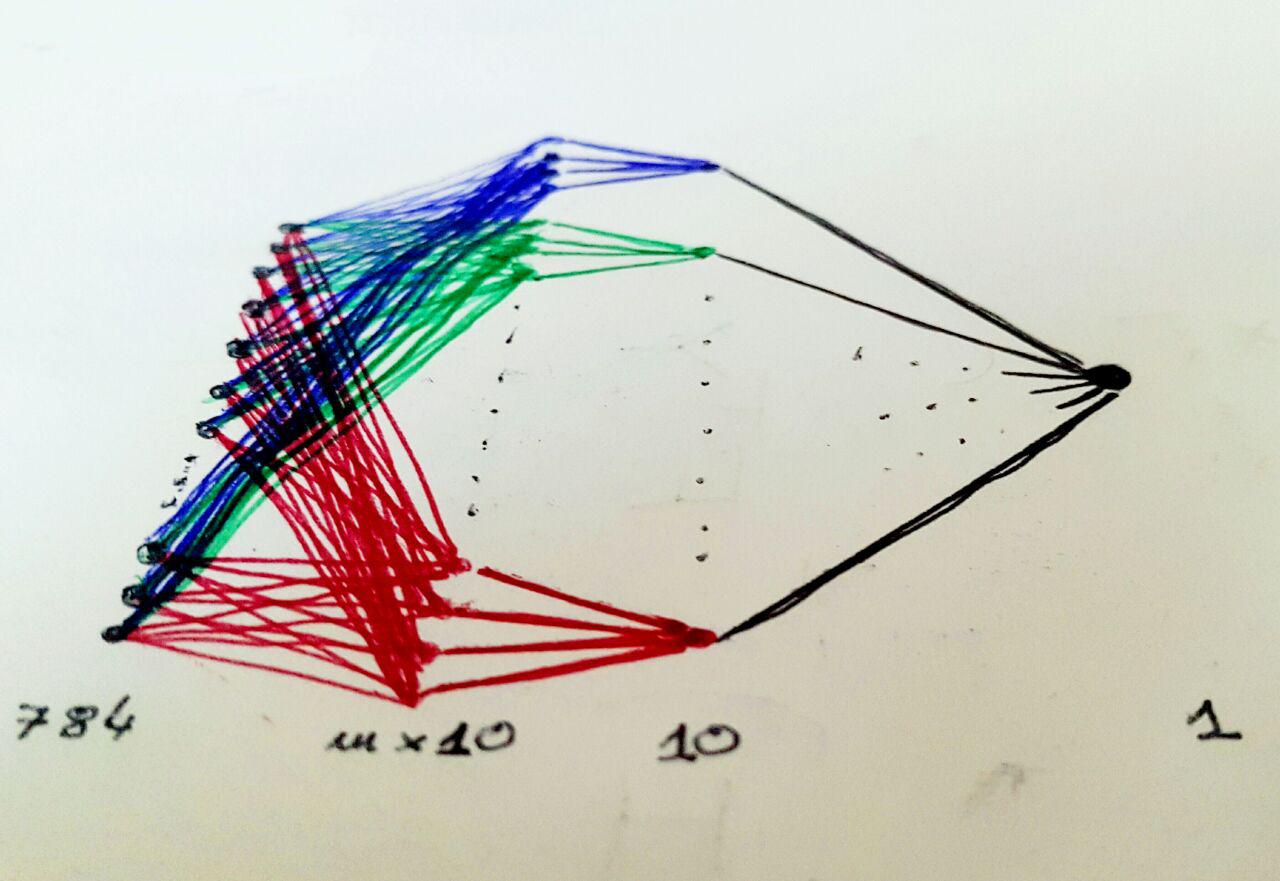 784 m x 10 10 1